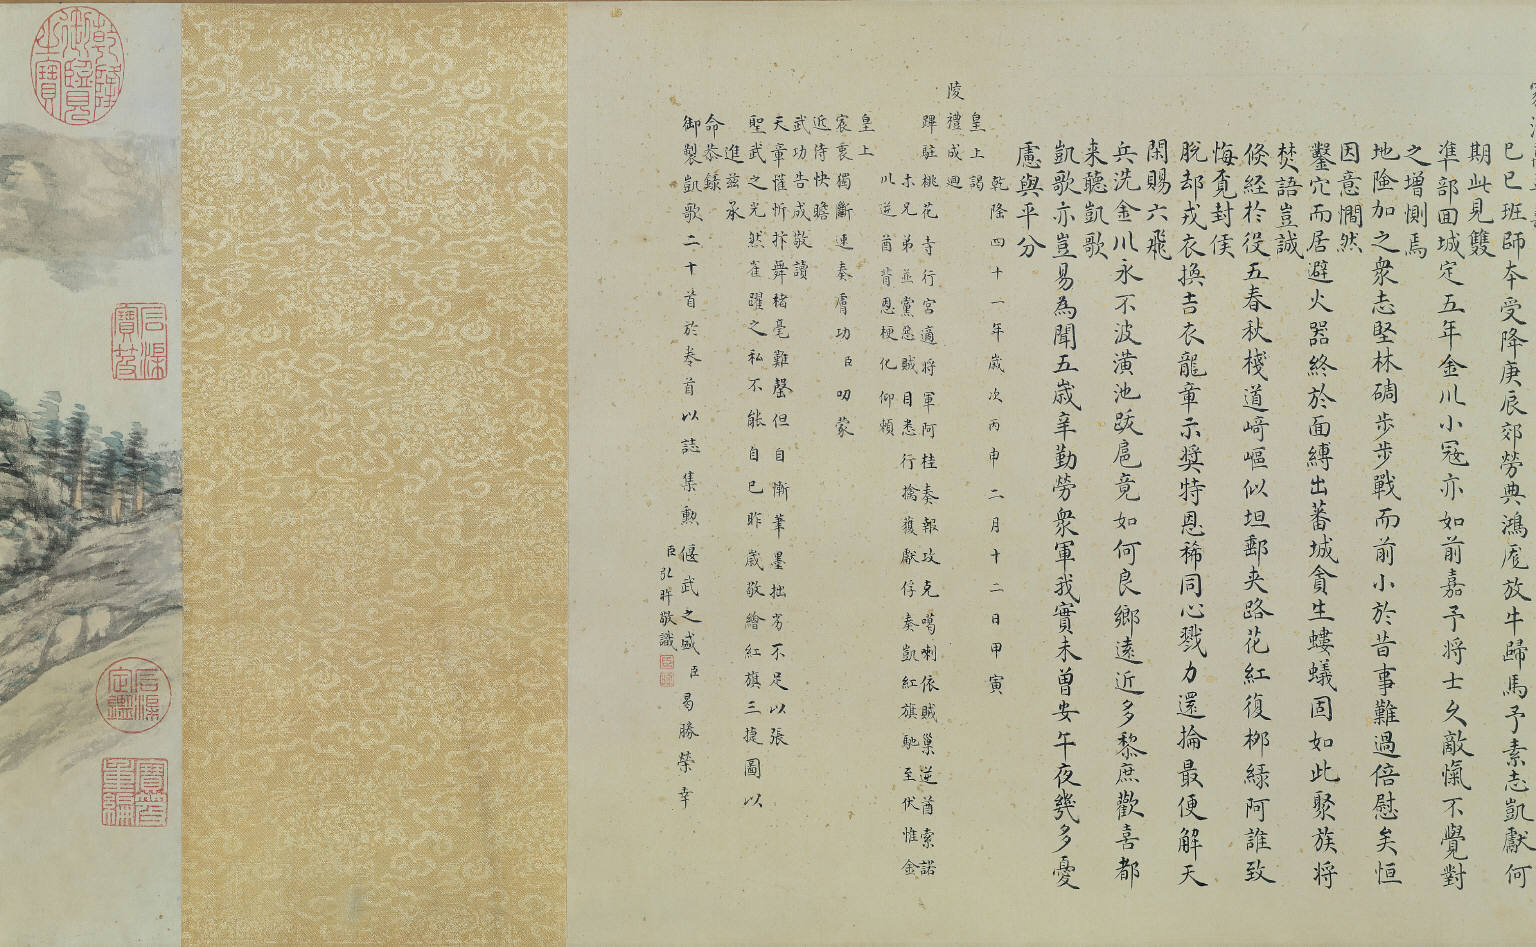 已巳班師本受降庚辰郊勞典鴻厖放牛歸馬予素志凱獻何
期此見雙
準部回城定五年金川小寇亦如前嘉予將士久敵愾不覺對
之增惻焉
地險加之衆志堅林碉步步戰而前小於昔事難過倍慰矣恒
因意憪然
鑿穴而居避火器終於面縛出蕃城貪生螻蟻固如此聚族將
焚語豈誠
倐経於役五春秋棧道﨑嶇似坦郵夾路花紅復栁緑阿誰致
悔覔封侯
脫却戎衣換吉衣龍章示奬特恩稀同心戮力還掄最便解天
閑賜六飛
兵洗金川永不波潢池跋扈竟如何良鄉遠近多黎庶歡喜都
来聽凱歌
凱歌亦豈易為聞五歳辛勤勞衆軍我實未曾安午夜幾多憂
慮與平分
乾隆四十一年歲次丙申二月十二日甲寅
皇上謁
陵禮成廻
蹕駐桃花寺行宮適將軍阿桂奏報攻克噶喇依賊巢逆酋索諾
木兄弟並黨惡賊目悉行擒獲獻俘奏凱紅旗馳至伏惟金
川逆酋背恩梗化仰賴
皇上
宸衷獨斷連奏膚功臣叨蒙
近侍快瞻
武功告成敬讀
天章懽忻抃舞楮毫難罄但自慚筆墨拙劣不足以張
聖武之光然雀躍之私不能自已昨歲敬繪紅旗三捷圖以
進茲承
命恭錄
御製凱歌二十首於卷首以誌集勲偃武之盛臣曷勝榮幸
臣弘旿敬識
乾隆御覽之寶
石渠寶笈
石渠定鑑
寶笈重編